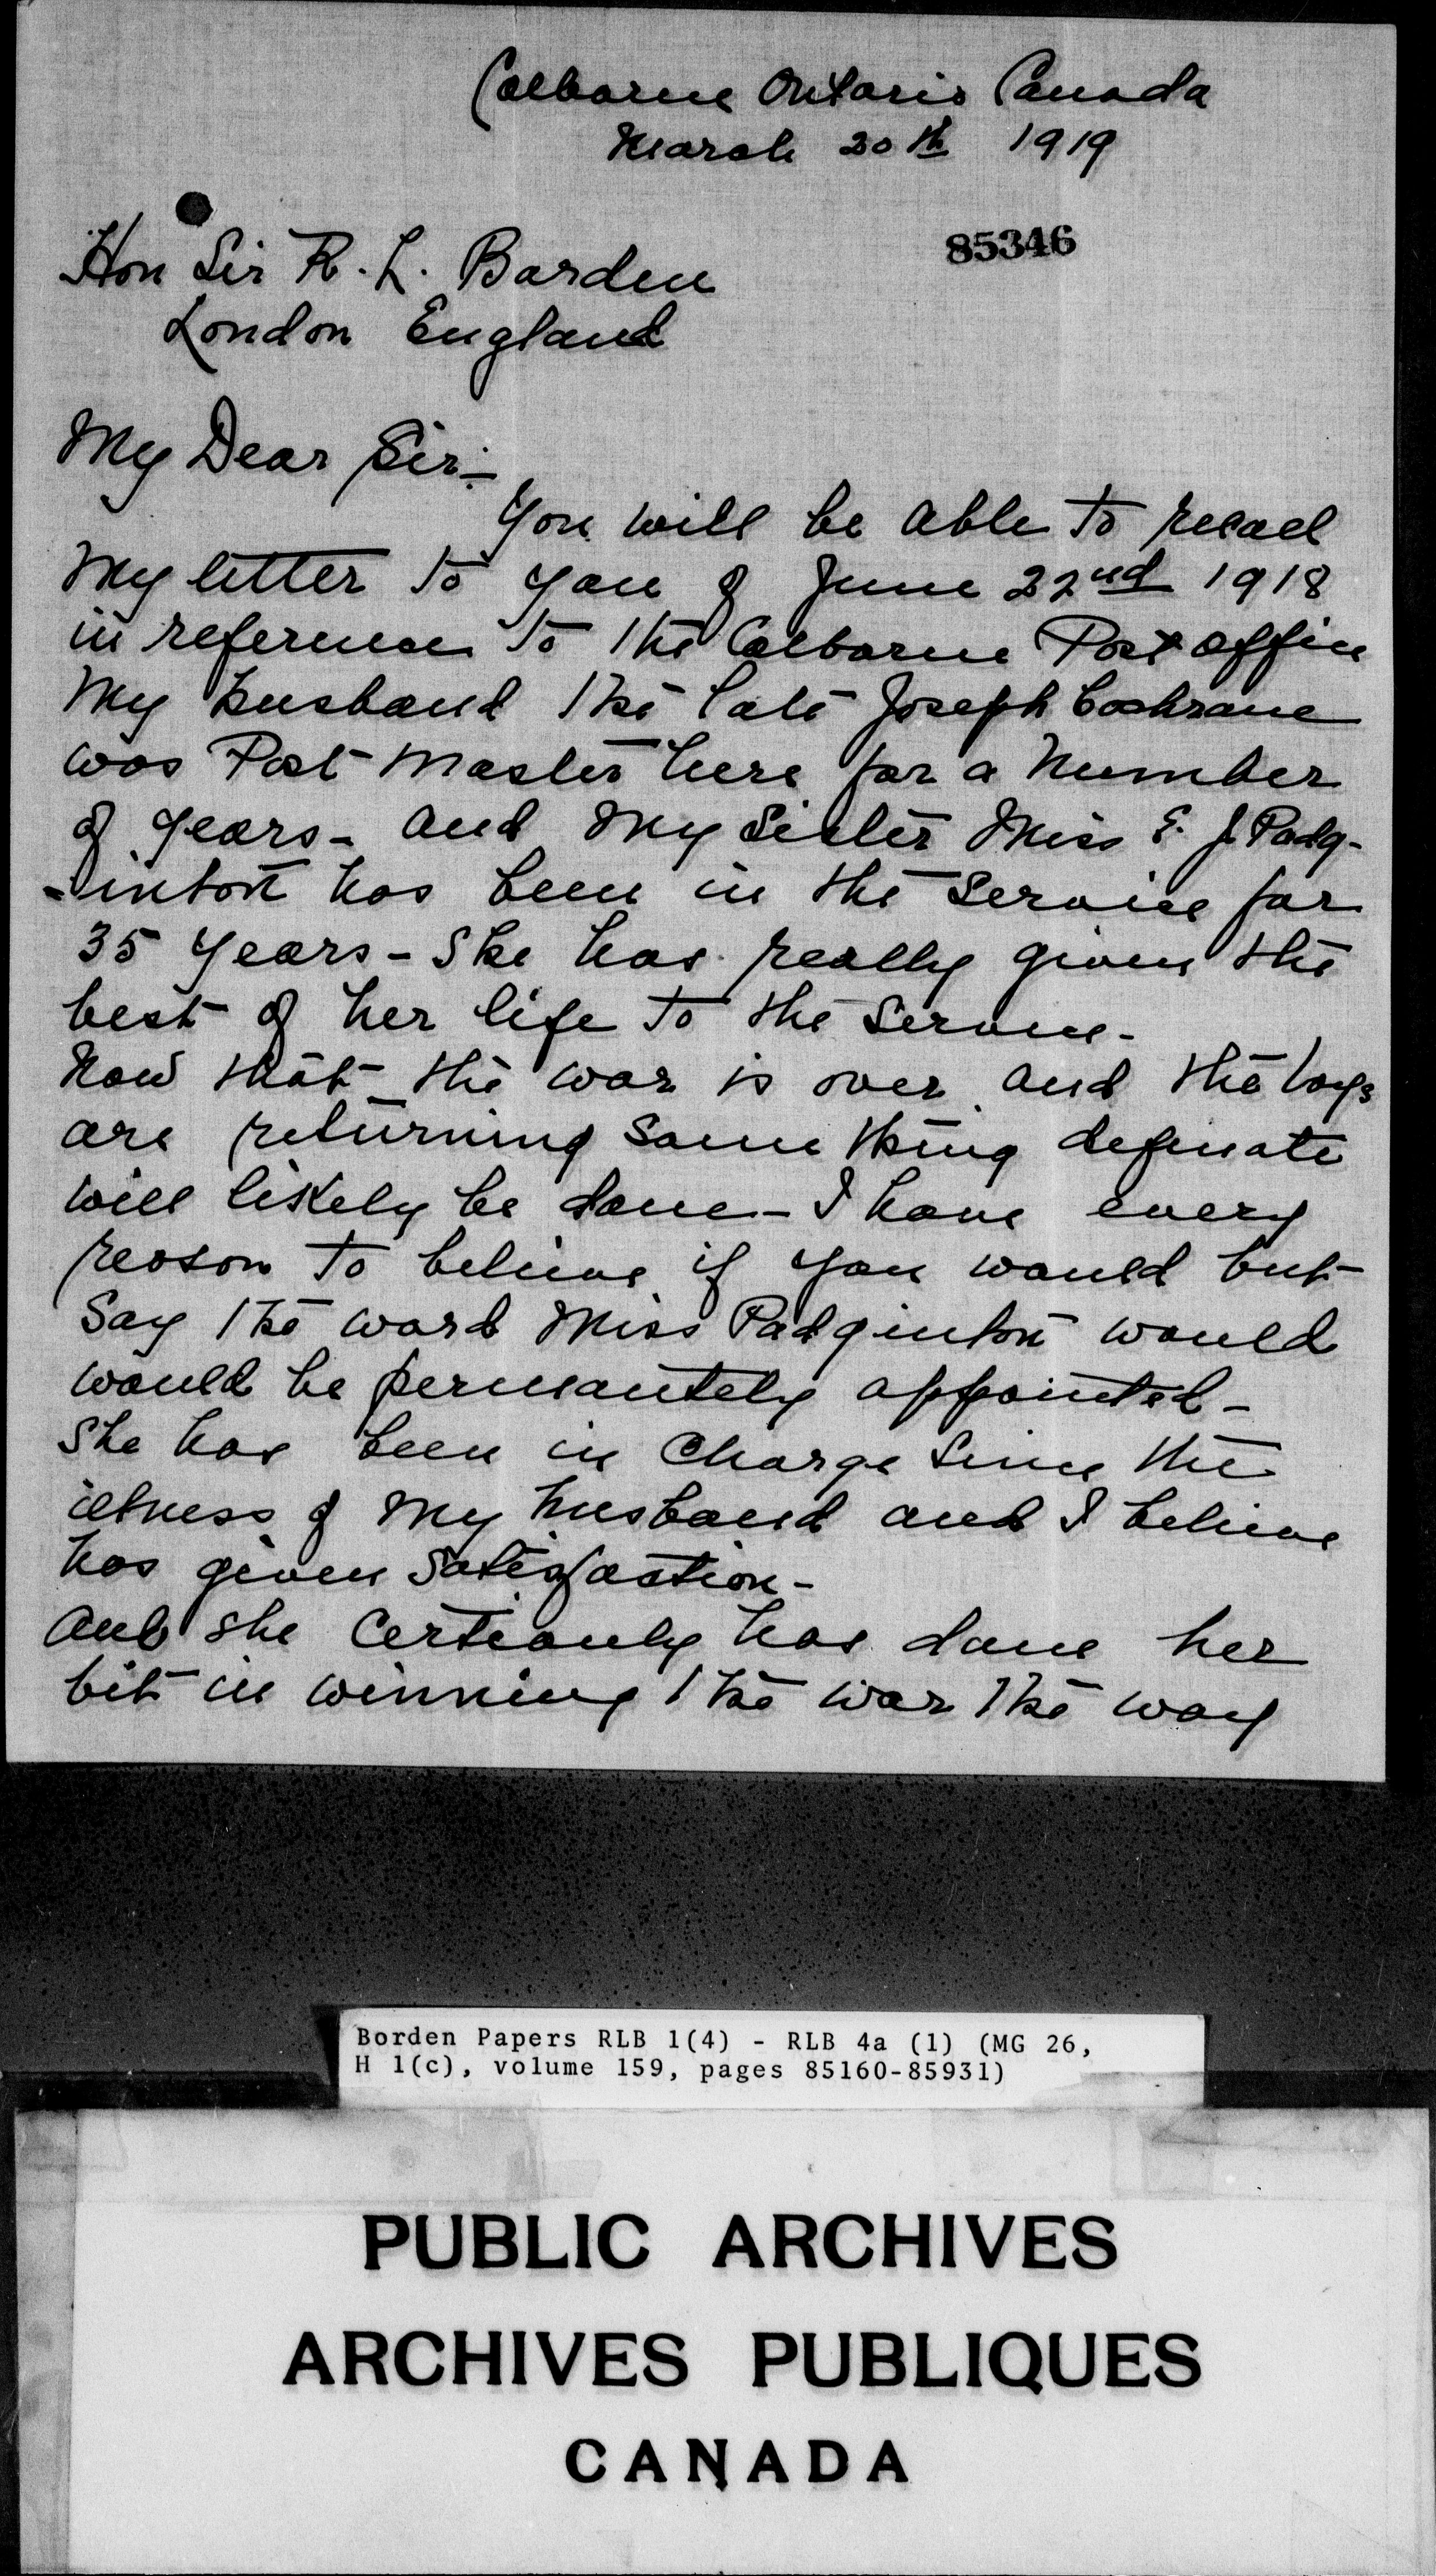 Colborne Ontario Canada
March 20th 1919
85346
Hon Sir R. L. Borden
London England
My Dear Sir:-
You will be able to recall
my letter to you of June 22nd 1918
in reference to the Colborne Post office
My husband the late Joseph Cochrane
was Post master here for a number
of years - and my sister Miss E. J. Padg-
-inton has been in the service for
35 years - She has really given the
best of her life to the service -
Now that the war is over and the boys
are returning some thing definate
will likely be done - I have every
reason to believe if you would but
say the word Miss Padginton would
would be permantely appointed -
She has been in charge since the
illness of my husband and I believe
has given satisfaction -
and she certianly has done her
bit in winning the war the way
Borden Papers RLB 1(4) - RLB 4a (1) (MG 26,
H 1(c), volume 159, pages 85160-85931)
PUBLIC ARCHIVES
ARCHIVES PUBLIQUES
CANADA